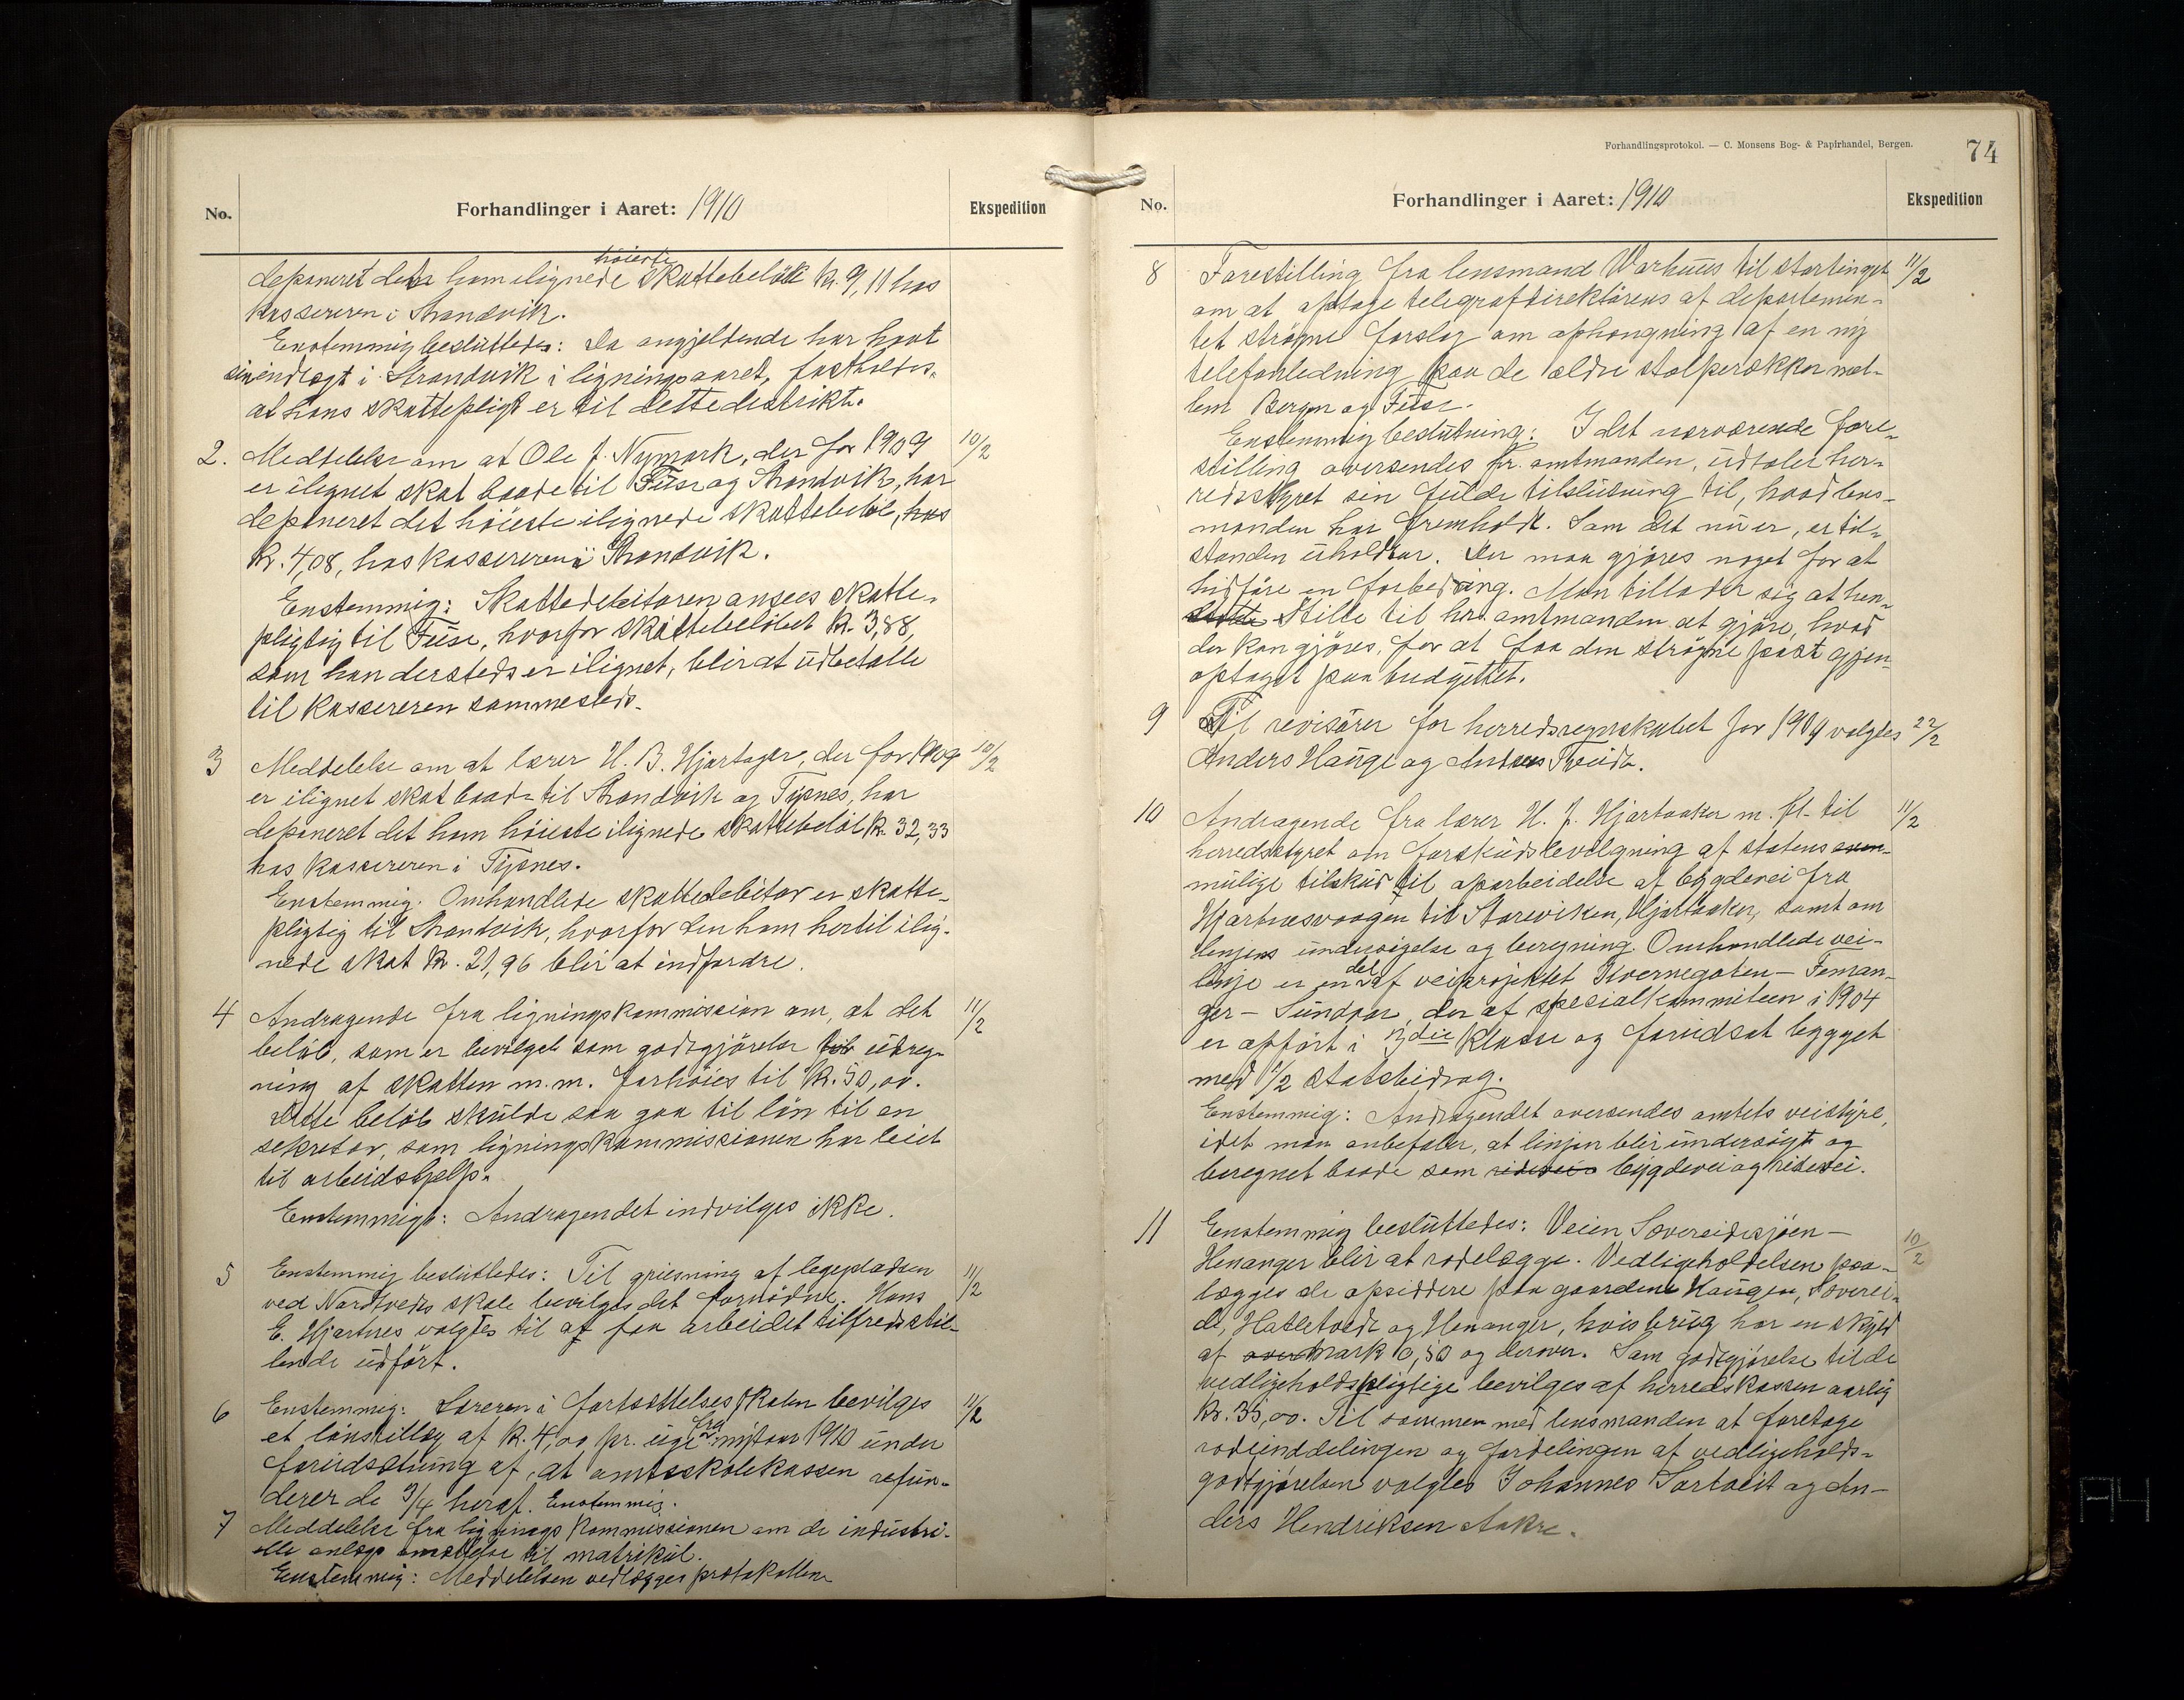 No.
Forhandlinger i Aaret: 1910
Ekspedition
høieste
deponeret det ham ilignede skattebeløb kr. 9,11 hos
kassereren i Strandvik.
Enstemmig besluttedes: Da angjeldende har havt
sin indtægt i Strandvik i ligningsaaret, fastholdes,
at hans skattepligt er til dette distrikt.
2. Meddelelse om at Ole J. Nymark, der for 1909 10/2
er ilignet skat baade til Fuse og Strandvik, har
deponeret det høieste ilignede skattebeløb, hos
kr. 4,08, hos kassereren i Strandvik.
Enstemmig: Skattedebitoren ansees skatte-
pligtig til Fuse, hvorfor skattebeløbet kr. 3,88,
som han dersteds er ilignet, blir at udbetale
til kassereren sammesteds.
3 Meddelelse om at lærer H. B. Hjartager, der for 1909 10/2
er ilignet skat baade til Strandvik og Tysnes, har
deponeret det ham høieste ilignede skattebeløb kr. 32,33
hos kassereren i Tysnes.
Enstemmig. Omhandlede skattedebitor er skatte-
pligtig til Strandvik, hvorfor den ham hertil ilig-
nede skat kr. 21,96 blir at indfordre.
4 Andragende fra ligningskommission om, at det 11/2
beløb, som er bevilget som godtgjørelse for udreg-
ning af skatten m.m. forhøies til kr. 50,00.
Dette beløb skulde saa gaa til løn til en
sekretær, som ligningskommissionen har leiet
til arbeidshjelp.
Enstemmigt: Andragendet indvilges ikke.
5 Enstemmig besluttedes: Til grusning af legepladsen 11/2
ved Nordtvedts skole bevilges det fornødne. Hans
E. Hjartnes valgtes til at faa arbeidet tilfredsstil-
lende udført.
6 Enstemmig: Læreren i fortsættelsesskolen bevilges 11/2
et lønstillæg af kr. 4,00 pr. uge fra nytaar 1910 under
forudsætning af, at amtsskolekassen refun-
derer de 3/4 heraf. Enstemmig.
7 Meddelelse fra ligningskommissionen om de industri-
elle anlægs ansættelse til matrikul.
Enstemmig: Meddelelsen vedlægges protokollen
Forhandlingsprotokol. — C. Monsens Bog- & Papirhandel, Bergen.
74
No.
Forhandlinger i Aaret: 1910
Ekspedition
8 Forestilling fra lensmand Varhuus til stortinget 11/2
om at optage telegrafdirektørens af departemen-
tet strøgne forslag om ophængning af en ny
telefonledning paa de ældre stolperækker mel-
lem Bergen og Fuse.
Enstemmig beslutning: Idet nærværende fore-
stilling oversendes hr. amtmanden, udtaler her-
redsstyret sin fulde tilslutning til, hvad lens-
manden har fremholdt. Som det nu er, er til-
standen uholdbar. Der maa gjøres noget for at
hidføre en forbedring. Man tillader sig at hen-
stille til hr. amtmanden at gjøre, hvad
der kan gjøres, for at faa den strøgne post gjen-
optaget paa budgettet.
9 Til revisører for herredsregnskabet for 1909 valgtes 22/2
Anders Hauge og Anders Tveide.
10 Andragende fra lærer H. J. Hjartaaker m. fl. til 11/2
herredsstyret om forskudsbevilgning af statens even-
mulige tilskud til oparbeidelse af bygdevei fra
Hjartnesvaagen til Storeviken, Hjartaaker, samt om
linjens undersøgelse og beregning. Omhandlede vei-
linje er en del af veiprojektet Kvernegoten — Feman-
ger — Sundvor, der af specialkomiteen i 1904
er opført i 3die klasse og forudsat bygget
med 1/2 statsbidrag.
Enstemmig: Andragendet oversendes amtets veistyre,
idet man anbefaler, at linjen blir undersøgt og
beregnet baade som rideveis bygdevei og ridevei.
11 Enstemmig besluttedes: Veien Sævereidsjøen — 10/2
Henanger blir at rodelægge. Vedligeholdelsen paa-
lægges de opsiddere paa gaardene Haugen, Søverei-
de, Hatletvedt og Henanger, hvis brug har en skyld
af over mark 0,50 og derover. Som godtgjørelse til de
vedligeholdspligtige bevilges af herredskassen aarlig
kr. 35,00. Til sammen med lensmanden at foretage
rodeinddelingen og fordelingen af vedligeholds-
godtgjørelsen valgtes Johannes Sørtveit og An-
ders Hendriksen Aakre.